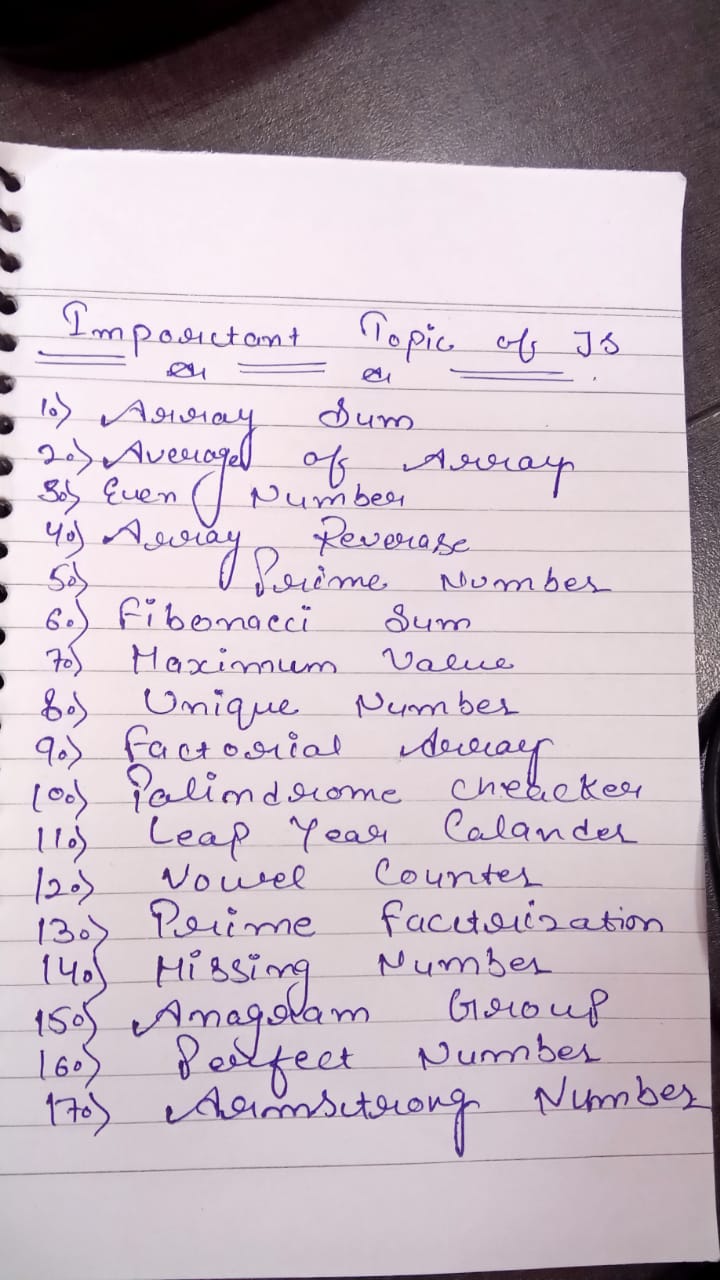 Important Topic of JS
1.) Array Sum
2.) Average of Array
3.) Even Number
4.) Array Reverse
5.) Prime Number
6.) Fibonacci Sum
7.) Maximum Value
8.) Unique Number
9.) Factorial Array
10.) Palindrome Cheacker
11.) Leap Year Calander
12.) Vowel Counter
13.) Prime Factorization
14.) Missing Number
15.) Anagram Group
16.) Perfect Number
17.) Armstrong Number